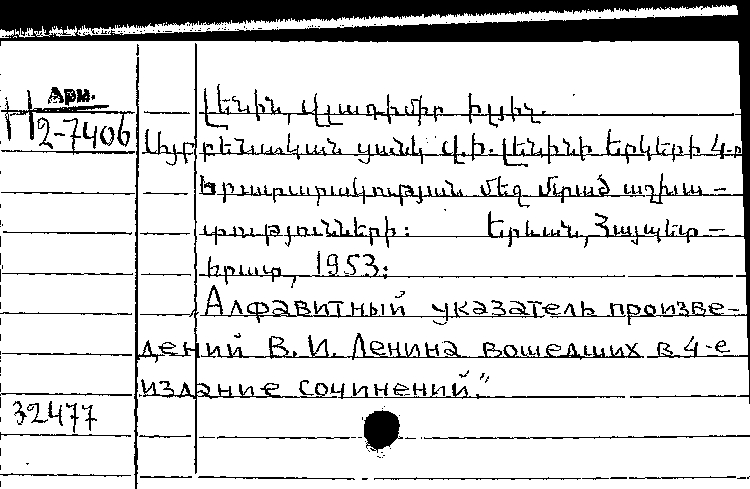 Арм.
Լենին, Վլադիմիր Իլյիչ.
Н 2-7406
Այբբենական ցանկ Վ.Ի. Լենինի երկերի 4-րդ
հրատարակության մեջ մտած աշխա-
տությունների: Երևան, Հայպետ-
հրատ, 1953:
Алфавитный указатель произве-
дений В. И. Ленина вошедших в 4-е
издание сочинений."
32477